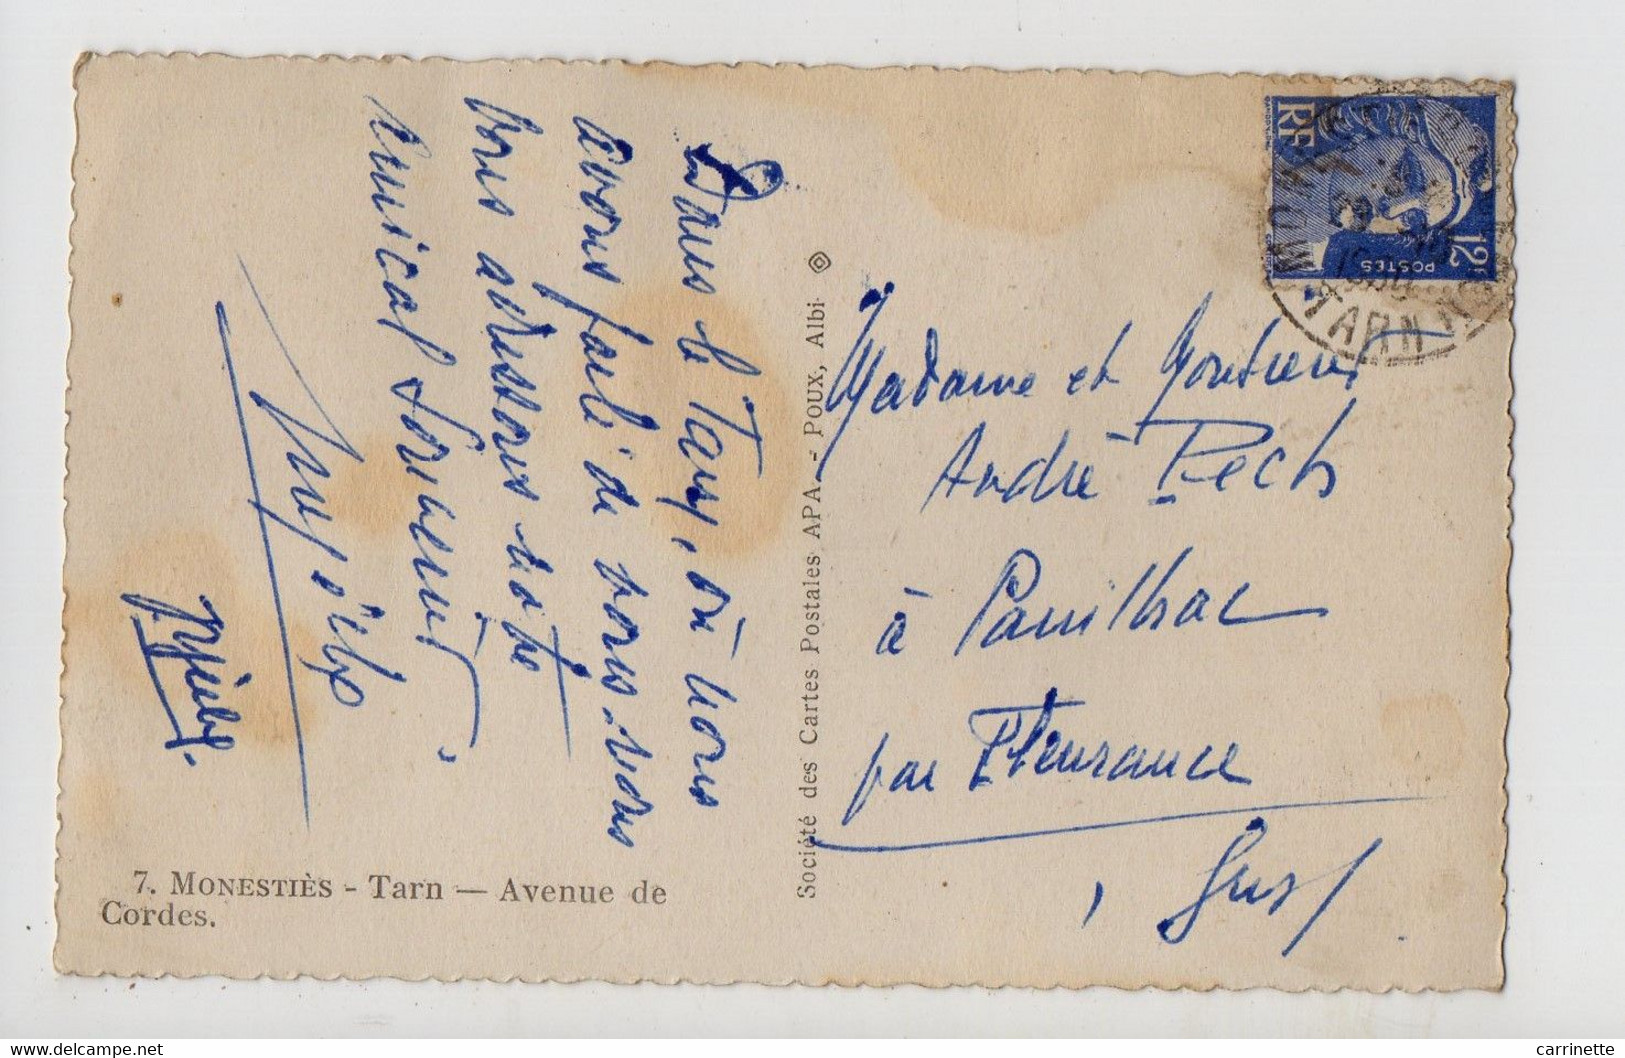 Dans le Tarn, où nous
avons parlé de vous, nous
vous adressons notre
amical souvenir.
7. MONESTIÈS - Tarn — Avenue de
Cordes.
Société des Cartes Postales APA - Poux, Albi
RF
POSTES
12F
TARN
Madame et Monsieur
André Pech
à Pauilhac
par Fleurance
Gers
carrinette